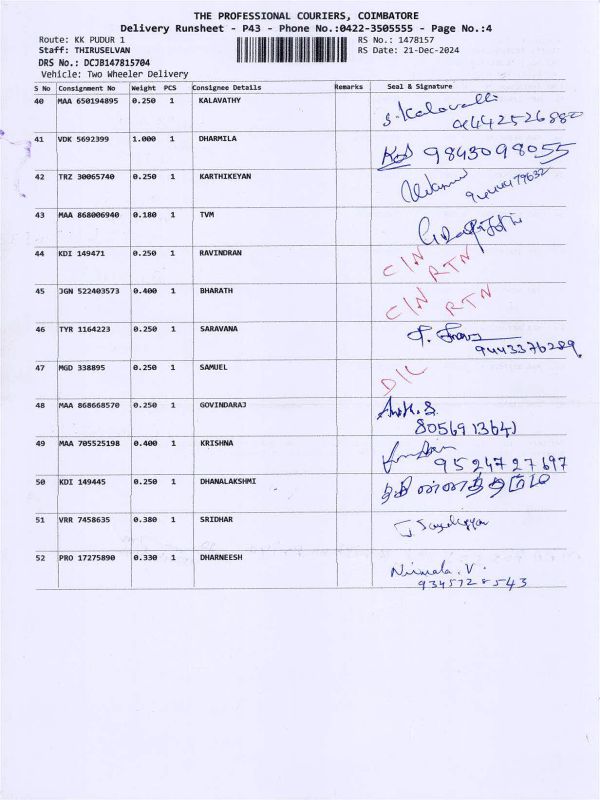 THE PROFESSIONAL COURIERS, COIMBATORE
Delivery Runsheet - P43 - Phone No.:0422-3505555 - Page No.:4
Route: KK PUDUR 1 RS No.: 1478157
Staff: THIRUSELVAN RS Date: 21-Dec-2024
DRS No.: DCJB147815704
Vehicle: Two Wheeler Delivery
S No Consignment No Weight PCS Consignee Details Remarks Seal & Signature
40 MAA 650194895 0.250 1 KALAVATHY S. Kalavalli
41 VDK 5692399 1.000 1 DHARMILA 9843098055
42 TRZ 30065740 0.250 1 KARTHIKEYAN
43 MAA 868006940 0.180 1 TVM
44 KDI 149471 0.250 1 RAVINDRAN C/N RTN
45 JGN 522403573 0.400 1 BHARATH C/N RTN
46 TYR 1164223 0.250 1 SARAVANA
9443376289
47 MGD 338895 0.250 1 SAMUEL D/L
48 MAA 868668570 0.250 1 GOVINDARAJ
8056913641
49 MAA 705525198 0.400 1 KRISHNA
9524727697
50 KDI 149445 0.250 1 DHANALAKSHMI
51 VRR 7458635 0.380 1 SRIDHAR
52 PRO 17275890 0.330 1 DHARNEESH Nirmala. V.
9345728543